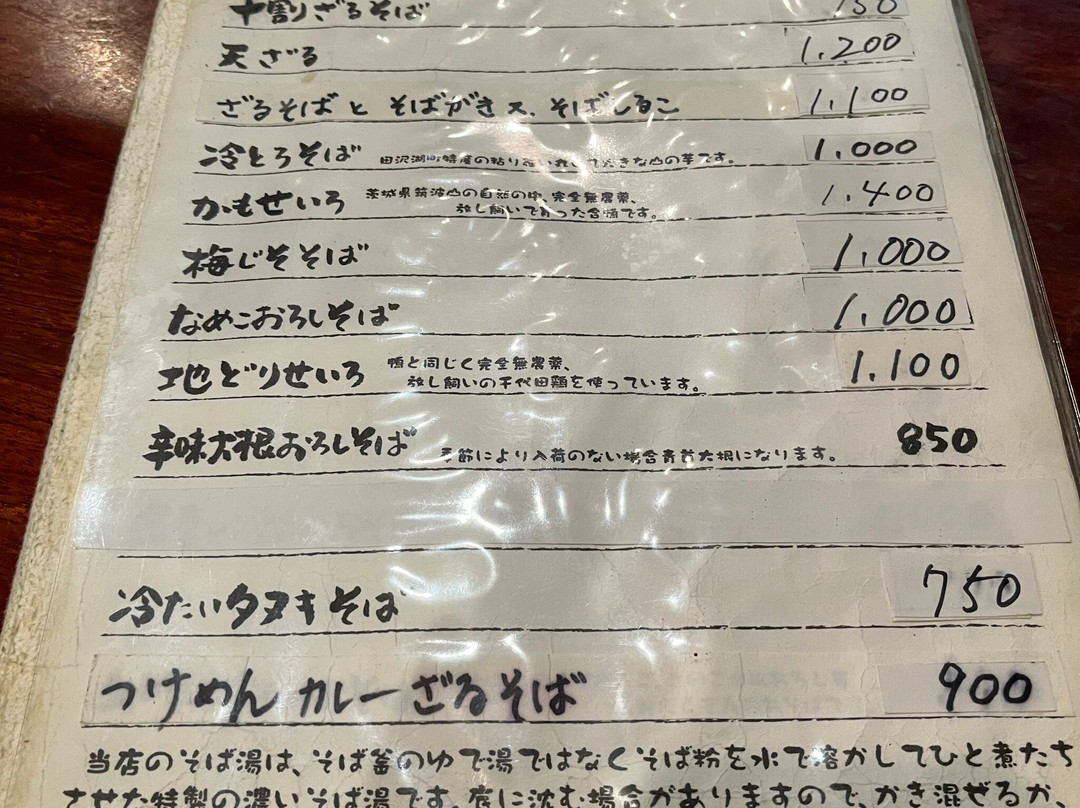 十割ざるそば 750
天ざる 1,200
ざるそばと そばがき又、そばしるこ 1,100
冷とろそば 田沢湖町特産の粘り強い丸くて大きな山の芋です。 1,000
かもせいろ 茨城県筑波山の自然の中、完全無農薬、 1,400
放し飼いで育った合鴨です。
梅じそそば 1,000
なめこおろしそば 1,000
地どりせいろ 鴨と同じく完全無農薬、 1,100
放し飼いの千代田鶏を使っています。
辛味大根おろしそば 季節により入荷のない場合青首大根になります。 850
冷たいタヌキそば 750
つけめん カレーざるそば 900
当店のそば湯は、そば釜のゆで湯ではなくそば粉を水で溶かしてひと煮たち
させた特製の濃いそば湯です。底に沈む場合がありますので、かき混ぜるか、